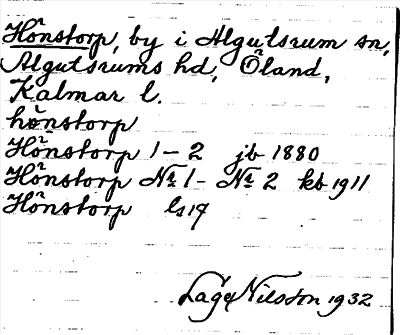 Hönstorp, by i Algutsrum sn,
Algutsrums hd, Öland,
Kalmar l.
hönstorp
Hönstorp 1-2 jb 1880
Hönstorp No 1- No 2 kb 1911
Hönstorp ls 19
Lage Nilsson 1932